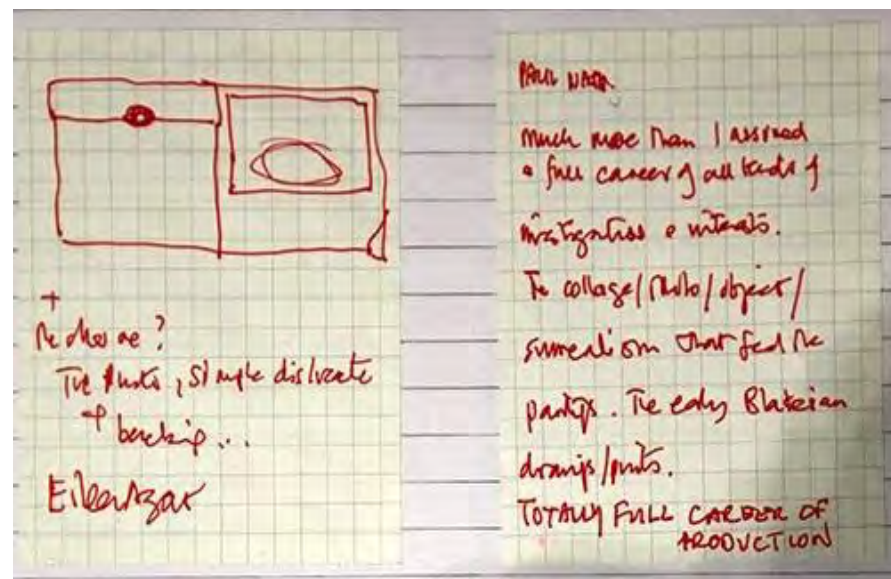 +
The other one?
The photo, simple dislocate
+ backing...
Eileen Agar
PAUL NASH
Much more than I assumed
a full career of all kinds of
investigations & interests.
The collage/photo/object/
surrealism that fed the
paintings. The early Blakeian
drawings/prints.
TOTALLY FULL CAREER OF
PRODUCTION